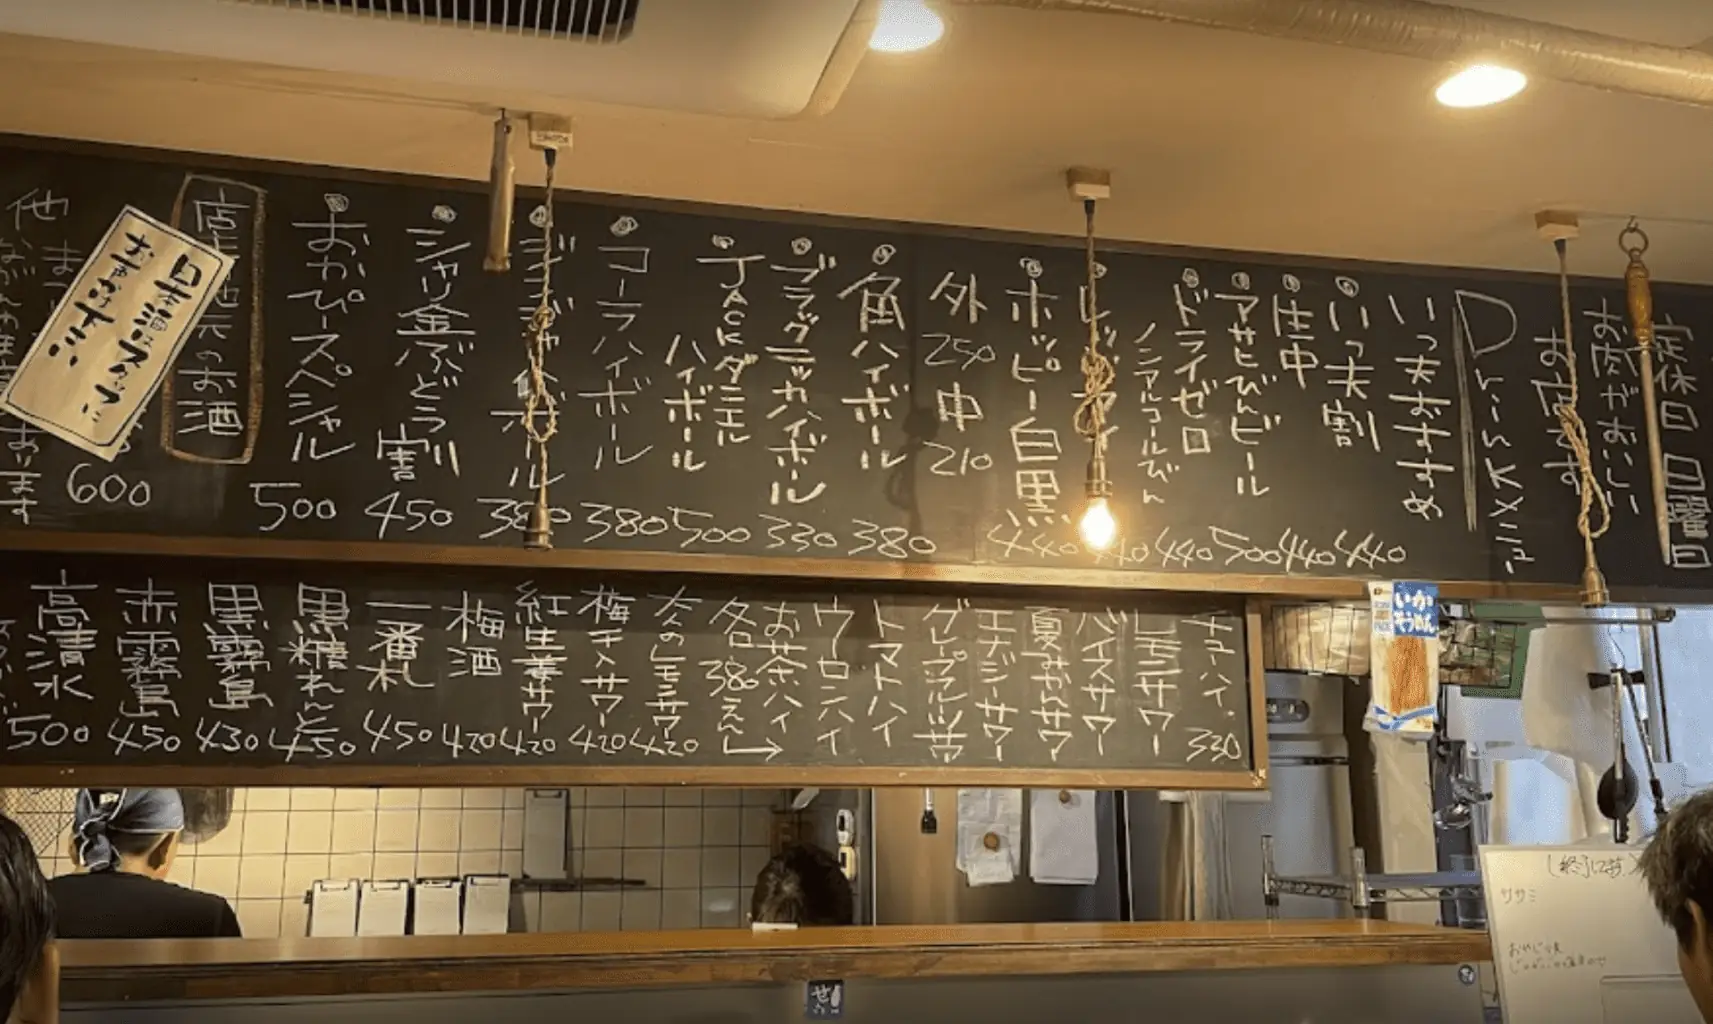 定休日 日曜日
お肉がおいしい
お店です
Drink メニュー
いっ夫おすすめ
いっ夫割 440
生中 440
アサヒびんビール 500
ドライゼロ 440
ノンアルコールびん
レッドアイ 440
ホッピー白黒 440
外 250 中 210
角ハイボール 380
ブラックニッカハイボール 330
JACKダニエル
ハイボール 500
コーラハイボール 380
ジンジャーハイボール 380
シャリ金ぶどう割 450
おかぴースペシャル 500
地元のお酒
600
他
あります
日本酒はスタッフに
お声かけ下さい
チューハイ 330
レモンサワー
バイスサワー
夏みかんサワー
エナジーサワー
グレープフルーツサワー
トマトハイ
ウーロンハイ
お茶ハイ
各380えん→
大人のレモンサワー 420
梅干入サワー 420
紅生姜サワー 420
梅酒 420
一番札 450
黒糖れんと 450
黒霧島 430
赤霧島 450
高清水 500
いか
そうめん
終了しました
ササミ
せ